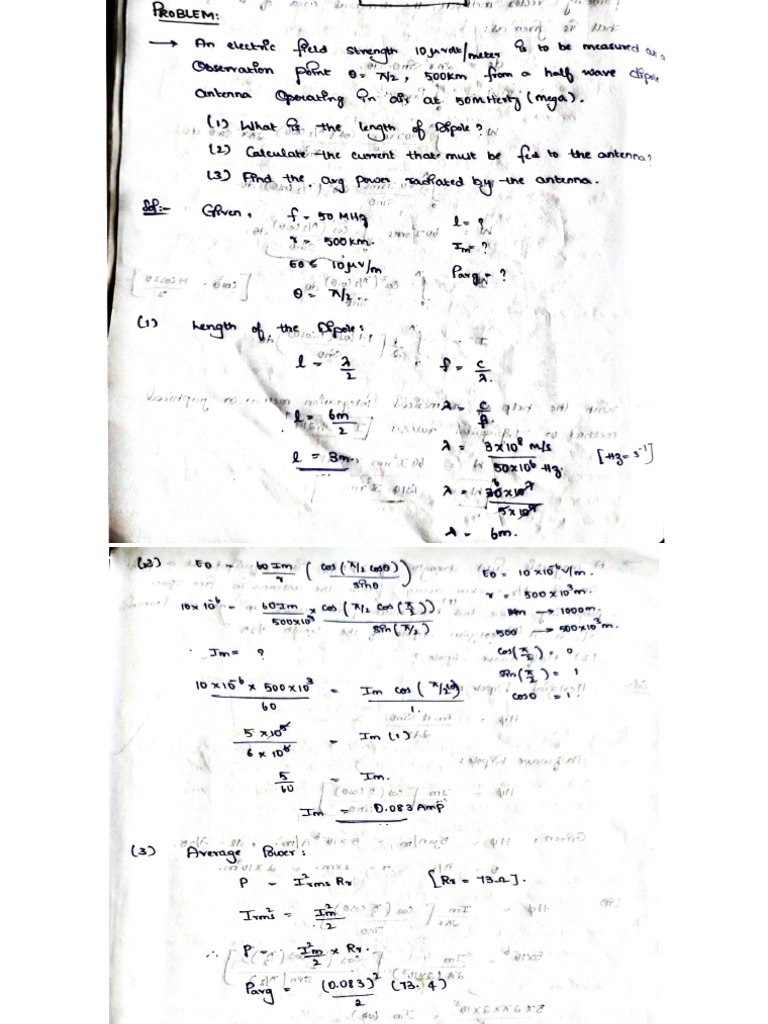 PROBLEM:
→ An electric field strength 10μvolt/meter is to be measured at a
Observation point θ = π/2, 500km from a half wave dipole
antenna Operating in air at 50MHertz (mega).
(1) What is the length of Dipole?
(2) Calculate the current that must be fed to the antenna?
(3) Find the avg power radiated by the antenna.
Sol:- Given, f = 50 MHz l = ?
r = 500km. Im = ?
Eθ = 10μv/m Pavg = ?
θ = π/2.
(1) Length of the Dipole:
l = λ/2 f = c/λ.
l = 6m/2 λ = c/f.
l = 3m. λ = 3×10^8 m/s / 50×10^6 Hz. [Hz = s^-1]
λ = 30×10^7 / 5×10^7
λ = 6m.
(2) Eθ = 60Im/r (cos(π/2 cosθ)/sinθ) Eθ = 10×10^-6 v/m.
r = 500×10^3 m.
10×10^-6 = 60Im/500×10^3 × cos(π/2 cos(π/2))/sin(π/2) → 1000m.
500 → 500×10^3 m.
Im = ? cos(π/2) = 0
sin(π/2) = 1
10×10^-6 × 500×10^3 / 60 = Im cos(π/2(0))/1. cos0 = 1.
5×10^5 / 6×10^6 = Im (1)
5/60 = Im.
Im = 0.083 Amp
(3) Average Power:
P = I²rms Rr [Rr = 73Ω].
I²rms = Im²/2
∴ P = I²m/2 × Rr.
Pavg = (0.083)²/2 (73.4)